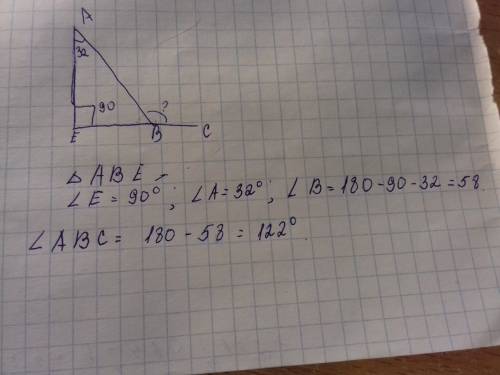 A
32
90
?
E
B
C
△ ABE -
∠E = 90°; ∠A = 32°; ∠B = 180-90-32=58
∠ABC = 180 - 58 = 122°